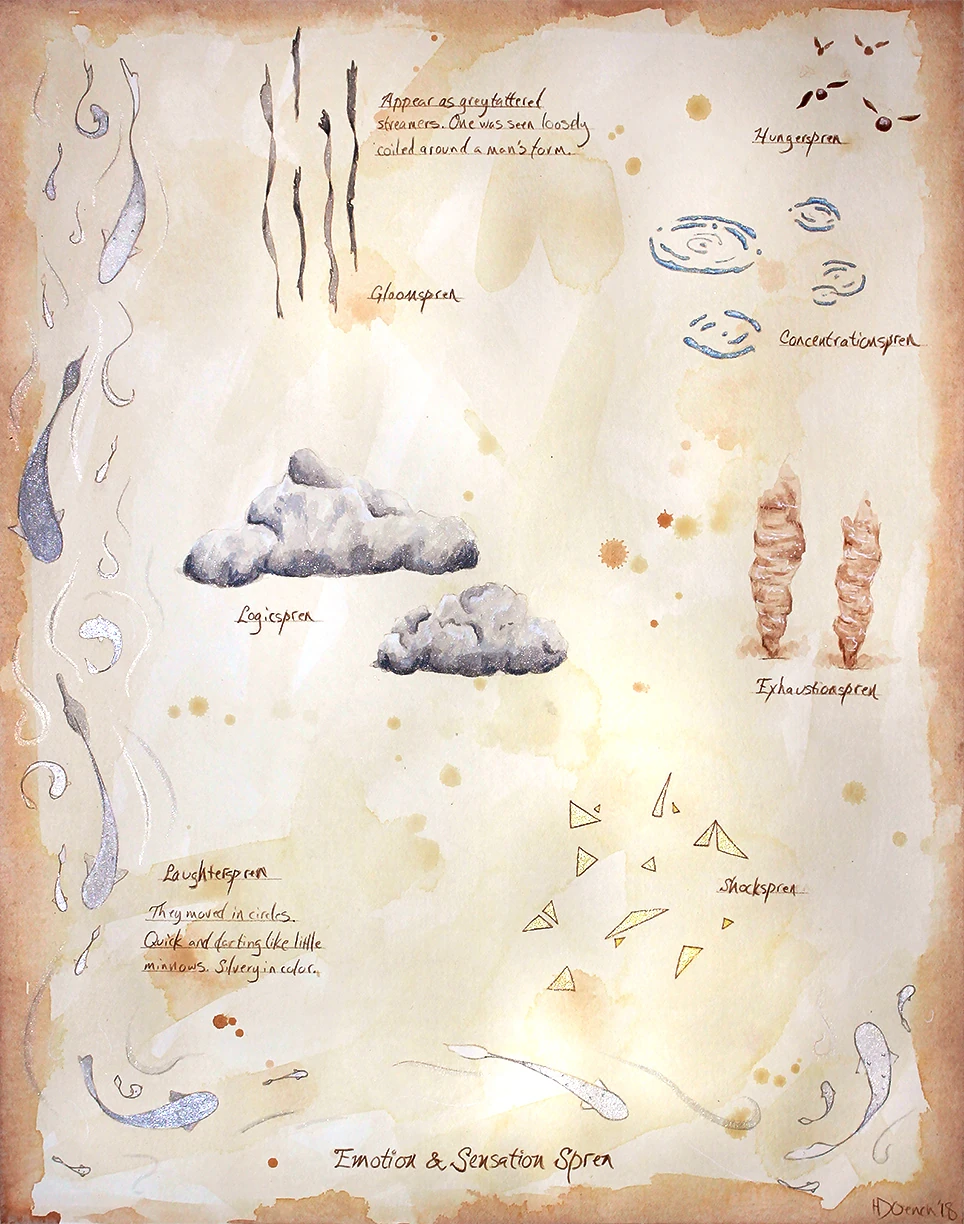 Appear as grey tattered
streamers. One was seen loosely
coiled around a man's form.
Gloomspren
Hungerspren
Concentrationspren
Logicspren
Exhaustionspren
Laughterspren
They moved in circles.
Quick and darting like little
minnows. Silvery in color.
Shockspren
Emotion & Sensation Spren
'18